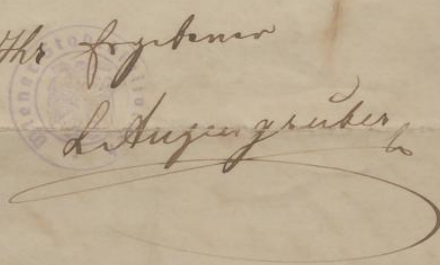 Ihr Ergebener
L. Anzengruber